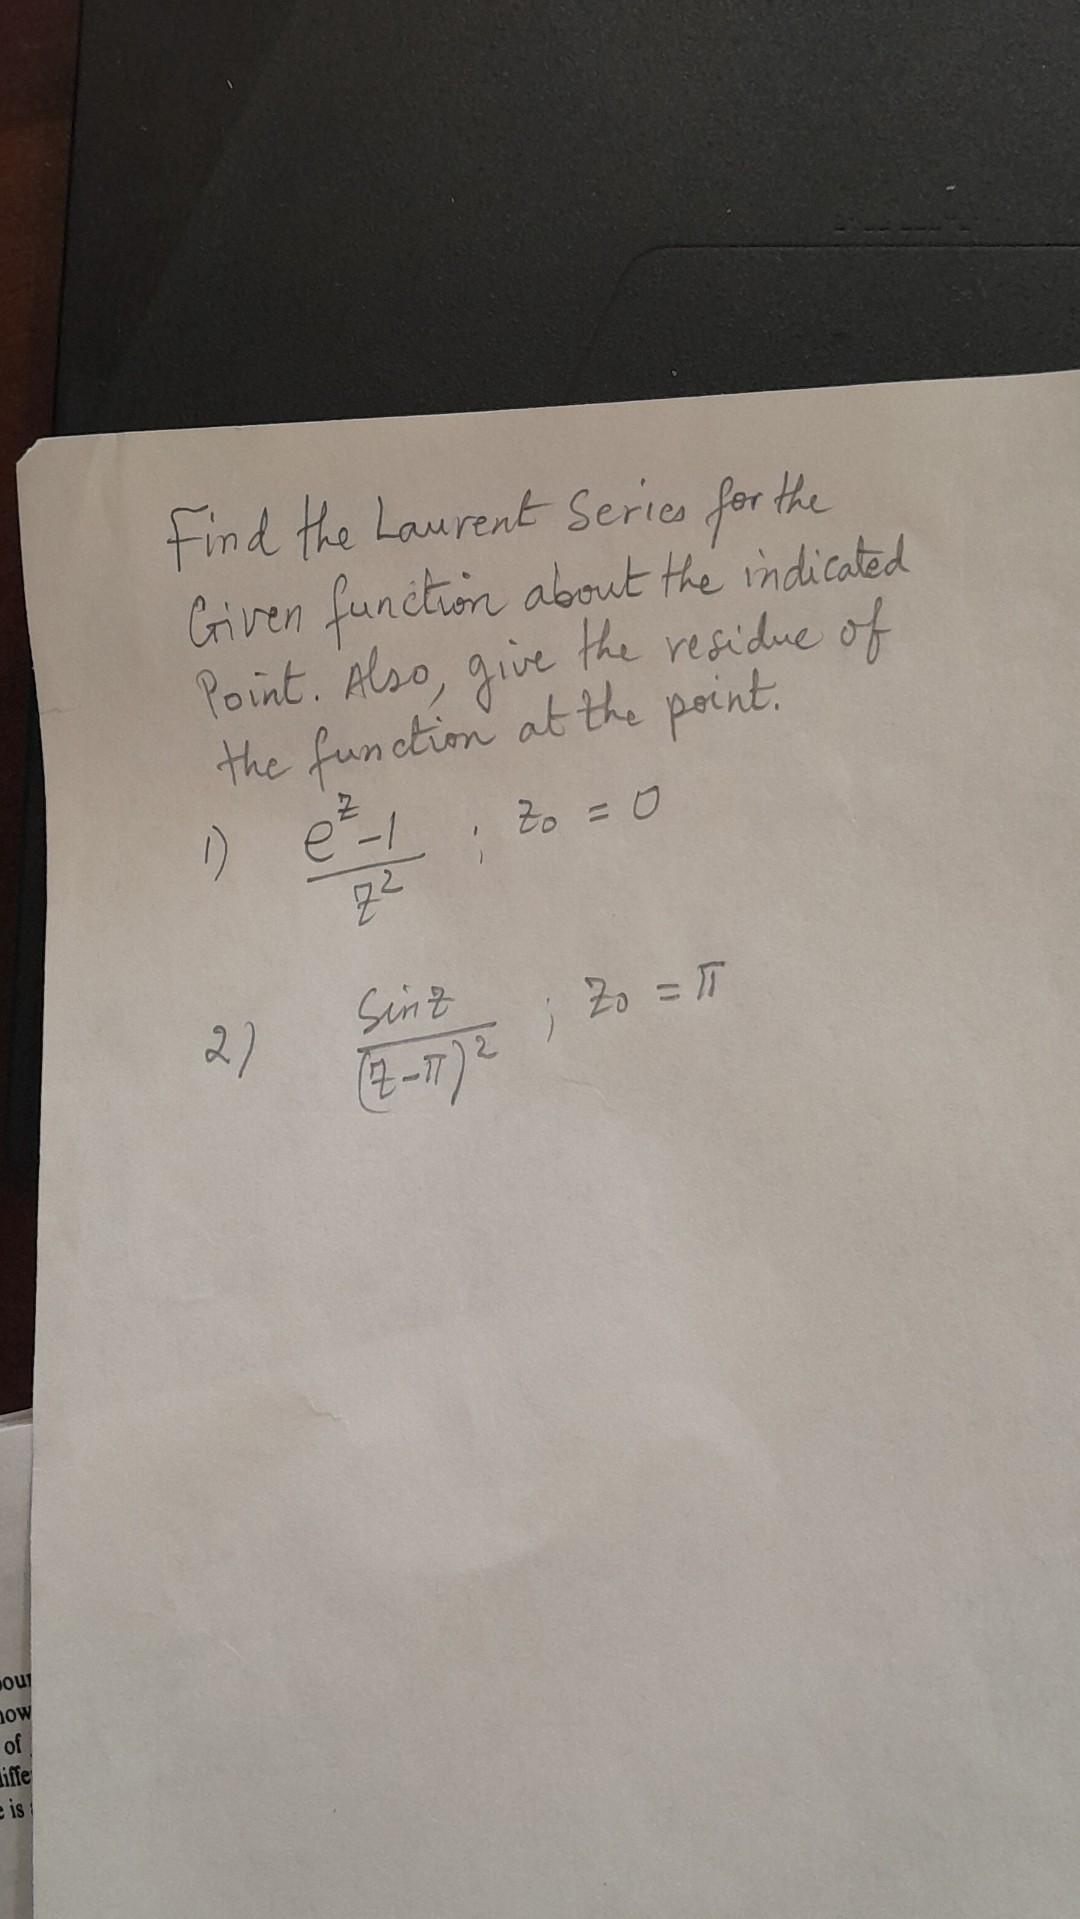 Find the Laurent Series for the
Given function about the indicated
Point. Also, give the residue of
the function at the point.
1) (e^z - 1)/z^2 ; z₀ = 0
2) Sin z/(z-π)^2 ; z₀ = π
of
is